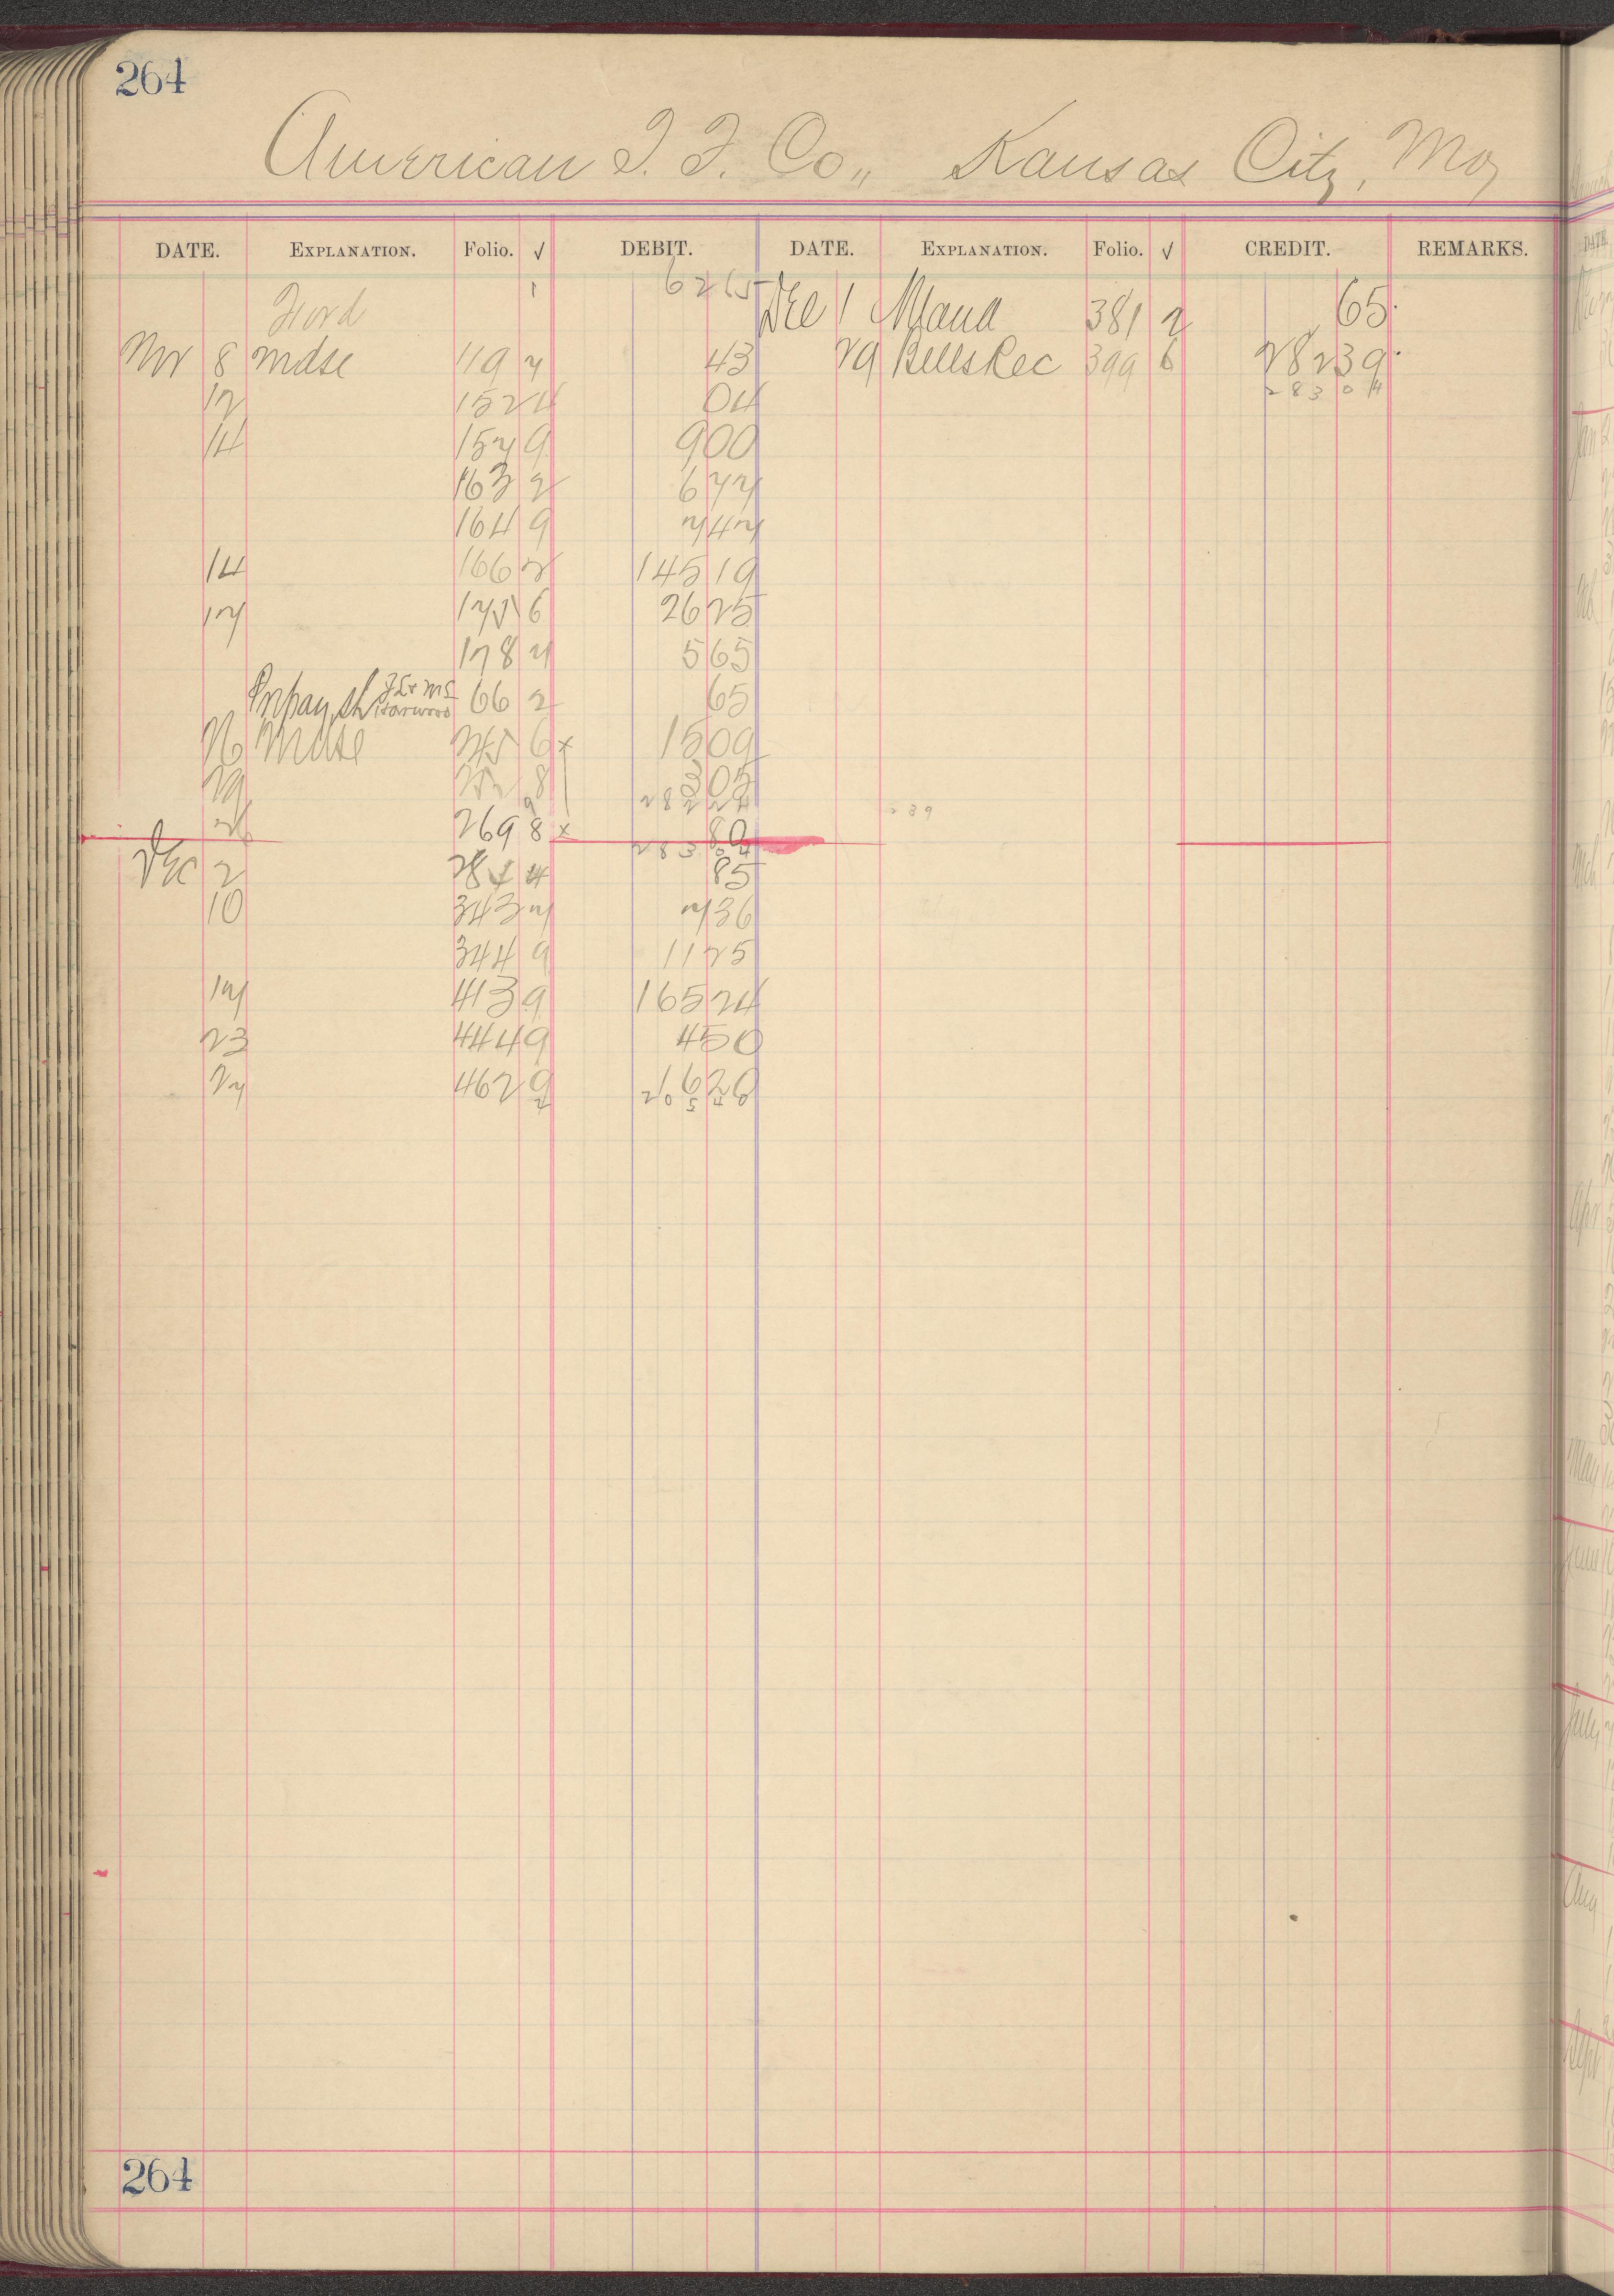 264
American T. F. Co., Kansas City, Mo,
DATE. EXPLANATION. Folio. √ DEBIT. DATE. EXPLANATION. Folio. √ CREDIT. REMARKS.
Fowd 6215 Dec 1 381 2 65
Nov 8 Mdse 119 7 43 29 Bills Rec 399 6 28239
12 152 4 04 28304
14 157 9 900
163 2 677
164 9 747
14 166 2 14519
17 175 6 2625
178 7 565
66 2 65
26 Mdse 245 6 x 1509
29 8 305
28224
269 8 x 80 239
28304
Dec 2 4 85
10 343 7 736
344 9 1125
17 413 9 16524
23 444 9 450
27 462 9 1620
264